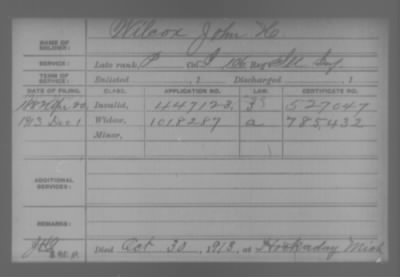 NAME OF SOLDIER: Wilcox John H.
SERVICE: Late rank, P Co. I, 106 Reg't Ill Inf
TERM OF SERVICE: Enlisted , 1 Discharged , 1
DATE OF FILING. CLASS. APPLICATION NO. LAW. CERTIFICATE NO.
1882 20, Invalid, 447123. 527047
1913 Dec 1 Widow, 1018287 a 785,432
Minor,
ADDITIONAL SERVICES:
REMARKS:
Died Oct 30, 1913, at Hockaday Mich